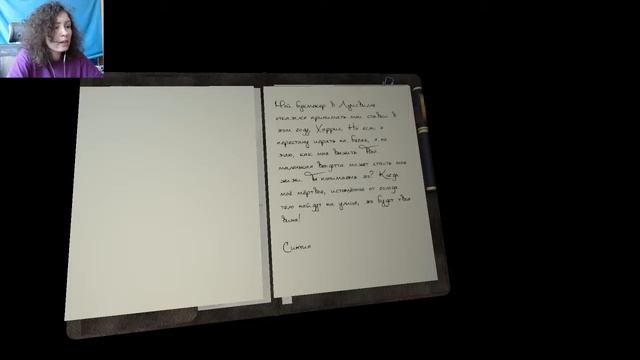 Мой букмекер в Луисвиле
отказался принимать мои ставки в
этом году, Харрис. Но если я
перестану играть на бегах, я не
знаю, как мне выжить. Твоя
маленькая вендетта может стоить мне
жизни. Ты понимаешь это? Когда
моё мёртвое, истощённое от голода
тело найдут на улице, это будет твоя
вина!
Синтия